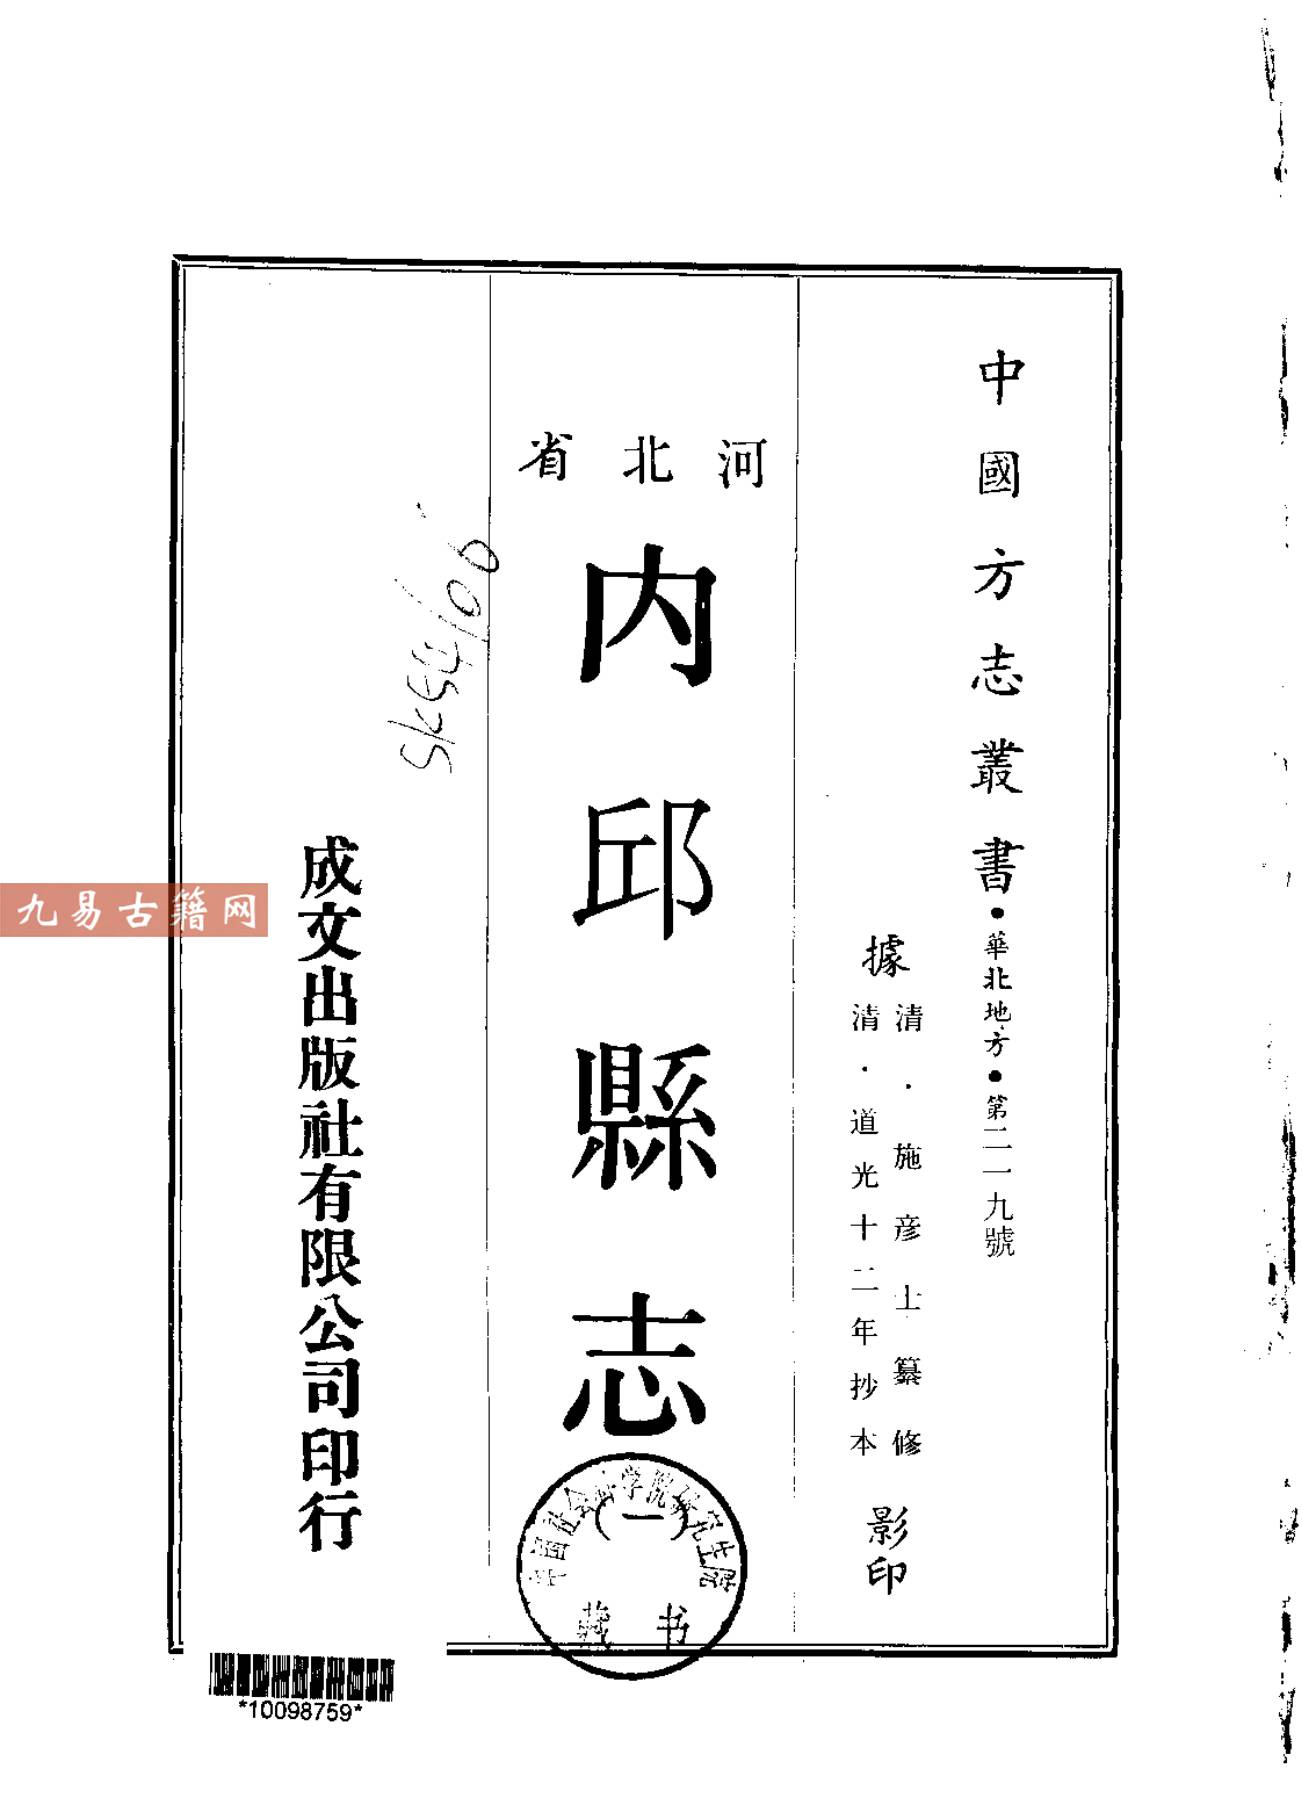 中國方志叢書・華北地方・第二一九號
據
清・施彦士纂修
清・道光十二年抄本
影印
河北省
内邱縣志
(一)
成文出版社有限公司印行
中国社会科学院研究生院
藏书
九易古籍网
*10098759*